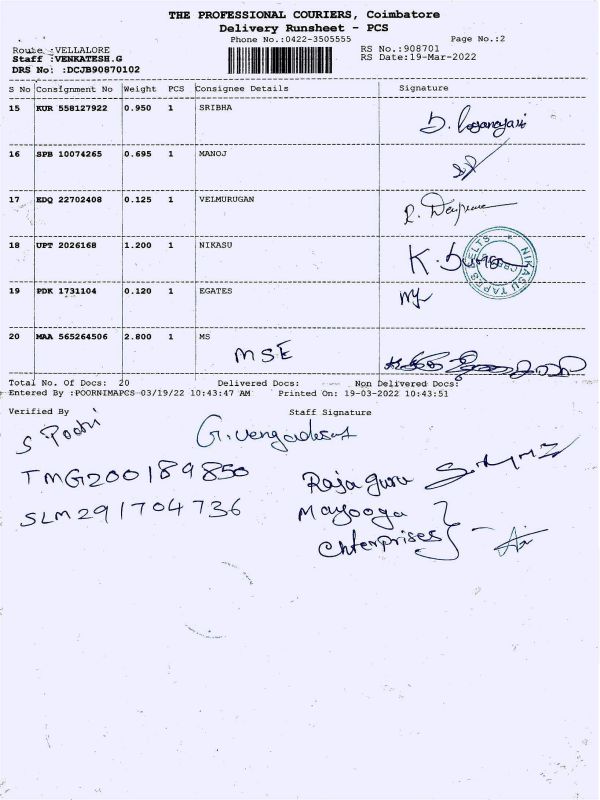 THE PROFESSIONAL COURIERS, Coimbatore
Delivery Runsheet - PCS
Phone No.:0422-3505555 Page No.:2
Route :VELLALORE RS No.:908701
Staff :VENKATESH.G RS Date:19-Mar-2022
DRS No: :DCJB90870102
S No Consignment No Weight PCS Consignee Details Signature
15 KUR 558127922 0.950 1 SRIBHA
16 SPB 10074265 0.695 1 MANOJ
17 EDQ 22702408 0.125 1 VELMURUGAN
18 UPT 2026168 1.200 1 NIKASU
NIKASU TAPES
19 PDK 1731104 0.120 1 EGATES
20 MAA 565264506 2.800 1 MS
MSE
Total No. Of Docs: 20 Delivered Docs: Non Delivered Docs:
Entered By :POORNIMAPCS 03/19/22 10:43:47 AM Printed On: 19-03-2022 10:43:51
Verified By Staff Signature
TMG200189850 Raja guru
SLM291704736 Mayooga
Enterprises